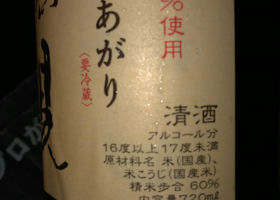 %使用
あがり
〈要冷蔵〉
清酒
アルコール分
16度以上17度未満
原材料名 米(国産)、
米こうじ(国産米)
精米歩合 60%
内容量720ml